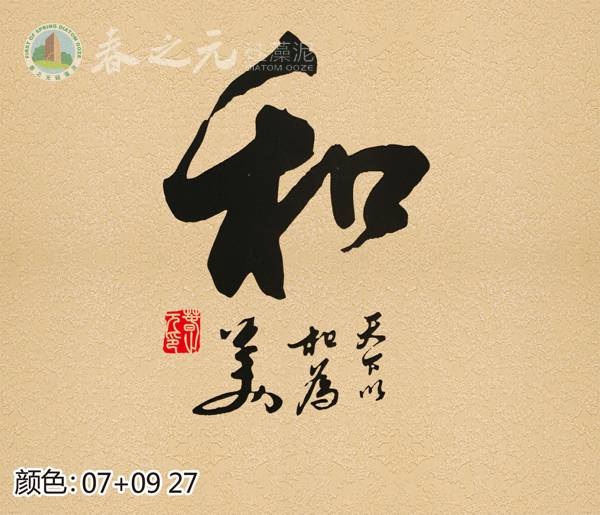 FIRST OF SPRING DIATOM OOZE
春之元硅藻泥
春之元
硅藻泥
DIATOM OOZE
和
天下以
和為
美
颜色: 07+09 27